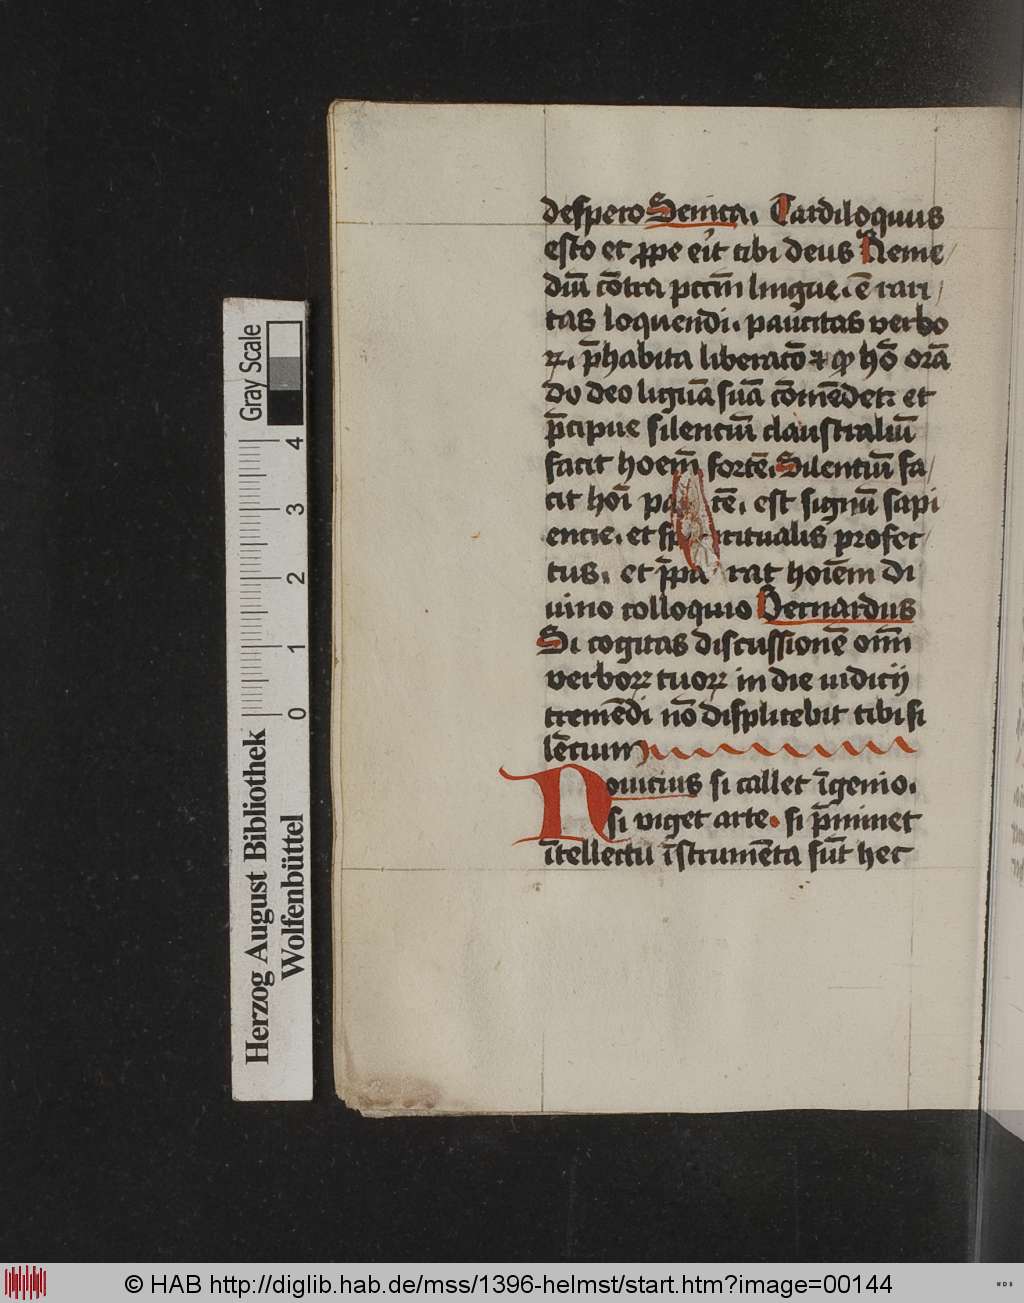 despero Senica. Tardiloquus
esto et ꝓpe erit tibi deus Reme
diū cōtra pctm̄ lingue. ē rari
tas loquendi. paucitas verbo
ꝝ. p̄habita liberacō ⁊ ꝙ hō orā
do deo liguā suā cōmēdet: et
p̄cipue silencīu claustraliū
facit hoem̄ fortē. Silentiū fa
cit hoī pa tē. est signū sapi
encie. et sp iritualis profec
tus. et p̄pa rat hoīem di
uino colloquio Bernardus
Si cogitas discussionē om̄
verboꝝ tuoꝝ in die iudicij
tremēdi nō displicebit tibi si
lēcium
Nouicius si callet īgenio.
si viget arte. si p̄minet
ītellectu īstrumēta sūt hec
Gray Scale
4 3 2 1 0
Herzog August Bibliothek
Wolfenbüttel
© HAB http://diglib.hab.de/mss/1396-helmst/start.htm?image=00144
WDB